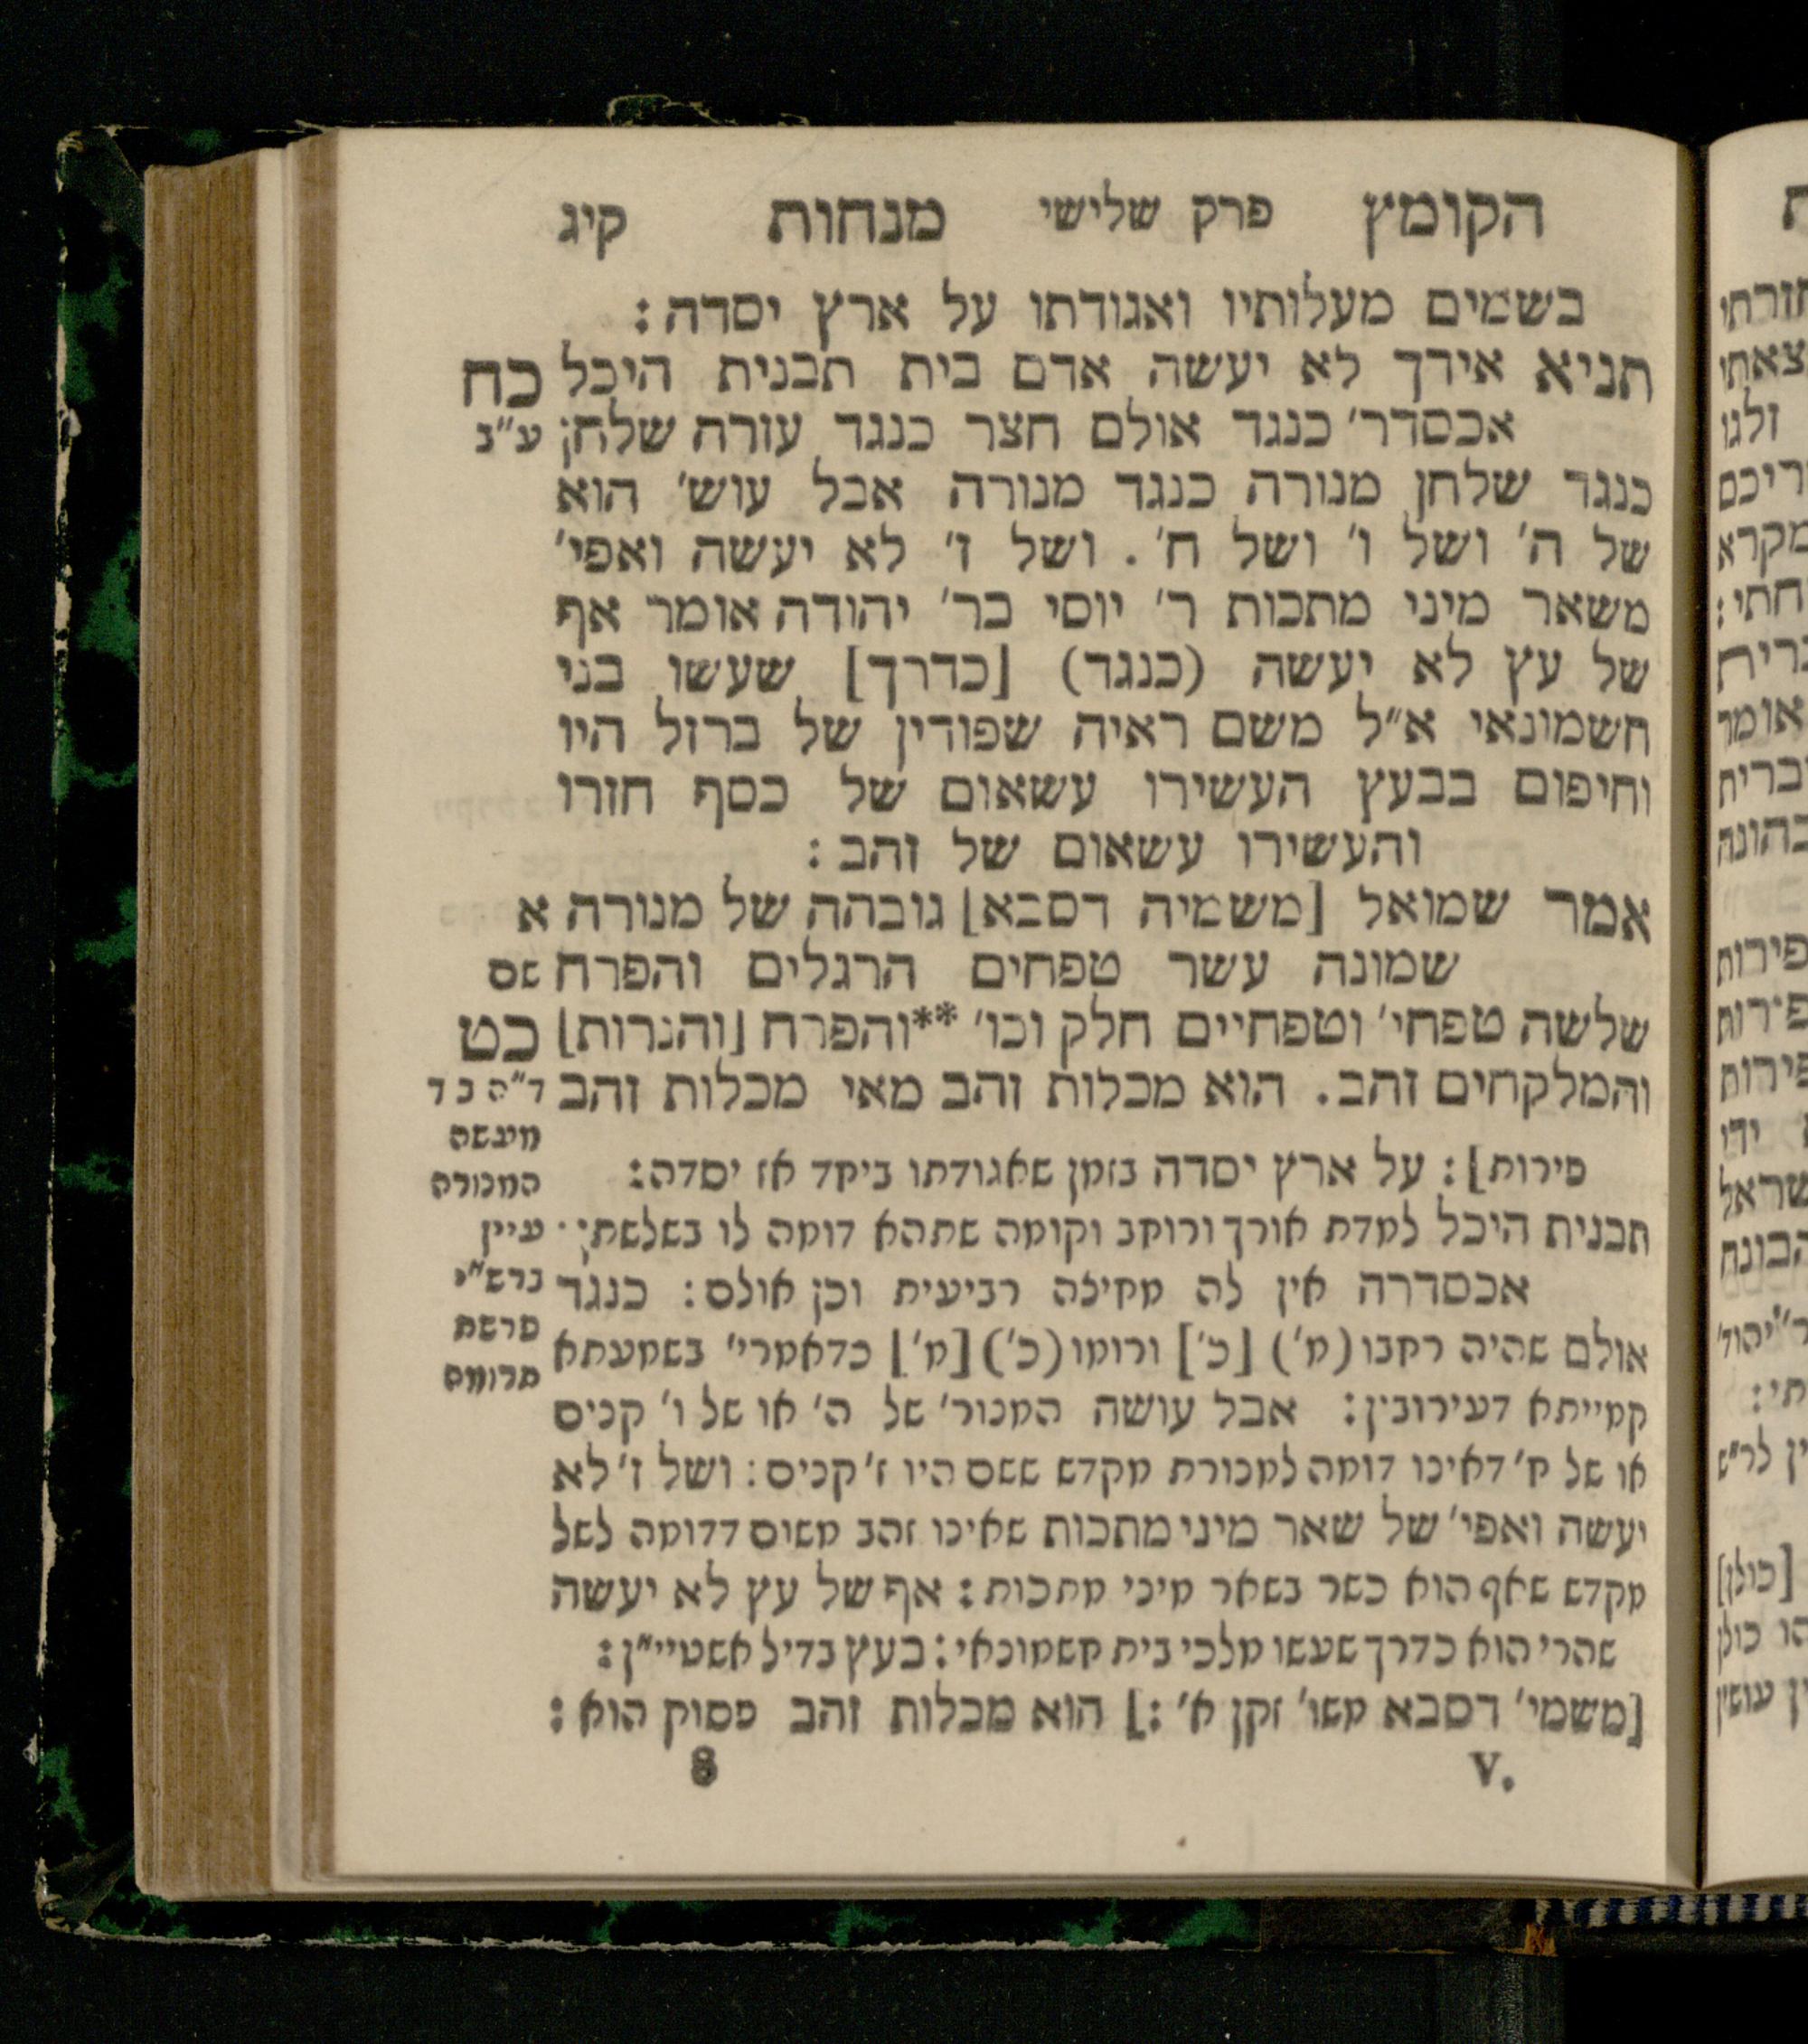 הקומץ פרק שלישי מנחות קיג
בשמים מעלותיו ואגודתו על ארץ יסדה :
תניא אידך לא יעשה אדם בית תבנית היכל
כח
אכסדר׳ כנגד אולם חצר כנגד עזרה שלחן
ע״ב
כנגד שלחן מנורה כנגד מנורה אבל עוש׳ הוא
של ה׳ ושל ו׳ ושל ח׳ . ושל ז׳ לא יעשה ואפי׳
משאר מיני מתכות ר׳ יוסי בר׳ יהודה אומר אף
של עץ לא יעשה (כנגד) [כדרך] שעשו בני
חשמונאי א״ל משם ראיה שפודין של ברזל היו
וחיפום בבעץ העשירו עשאום של כסף חזרו
והעשירו עשאום של זהב :
אמר שמואל [משמיה דסבא] גובהה של מנורה
א
שמונה עשר טפחים הרגלים והפרח
שם
שלשה טפחי׳ וטפחיים חלק וכו׳ **והפרח [והנרות]
כט
והמלקחים זהב. הוא מכלות זהב מאי מכלות זהב
ד״ה כד
מעשה
המנורה
עיין
ברש״י
פרשת
תרומה
פירות] : על ארץ יסדה בזמן שאגודתו ביחד אז יסדה:
תבנית היכל למדת אורך ורוחב וקומה שתהא דומה לו בשלשתן ·
אכסדרה אין לה מחיצה רביעית וכן אולם : כנגד
אולם שהיה רחבו (מ׳) [כ׳] ורומו (כ׳) [מ׳] כדאמרי׳ בשמעתא
קמייתא דעירובין : אבל עושה המנור׳ של ה׳ או של ו׳ קנים
או של ח׳ דאינו דומה למנורת מקדש ששם היו ז׳ קנים : ושל ז׳ לא
יעשה ואפי׳ של שאר מיני מתכות שאינו זהב משום דדומה לשל
מקדש שאף הוא כשר בשאר מיני מתכות : אף של עץ לא יעשה
שהרי הוא כדרך שעשו מלכי בית חשמונאי : בעץ בדיל אשטיי״ן :
[משמי׳ דסבא משו׳ זקן א׳ :] הוא מכלות זהב פסוק הוא :
V. 8